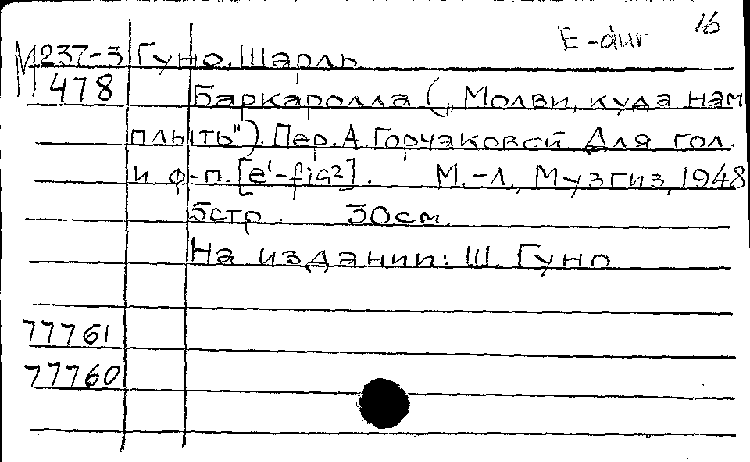 E-dur 16
М 237-3 Гуно, Шарль
478 Баркаролла („Молви, куда нам
плыть"). Пер. А. Горчаковой. Для гол.
и ф-п. [e'-fis²]. М.-Л., Музгиз, 1948
5 стр. 30 см.
На издании: Ш. Гуно
77761
77760